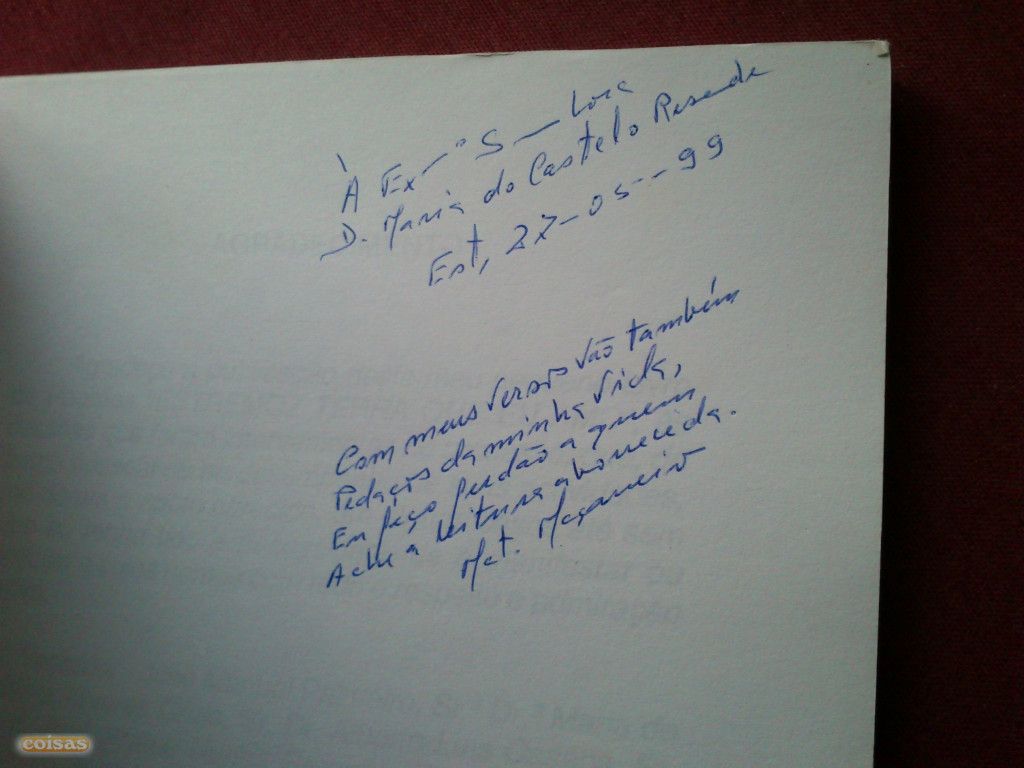 À Ex
D. Maria do Castelo Resende
Est, 27-05-99
Com meus versos vão também
Pedaços da minha vida,
Eu peço perdão a quem
Ache a leitura aborrecida.
Mat. Maçaneiro
coisas